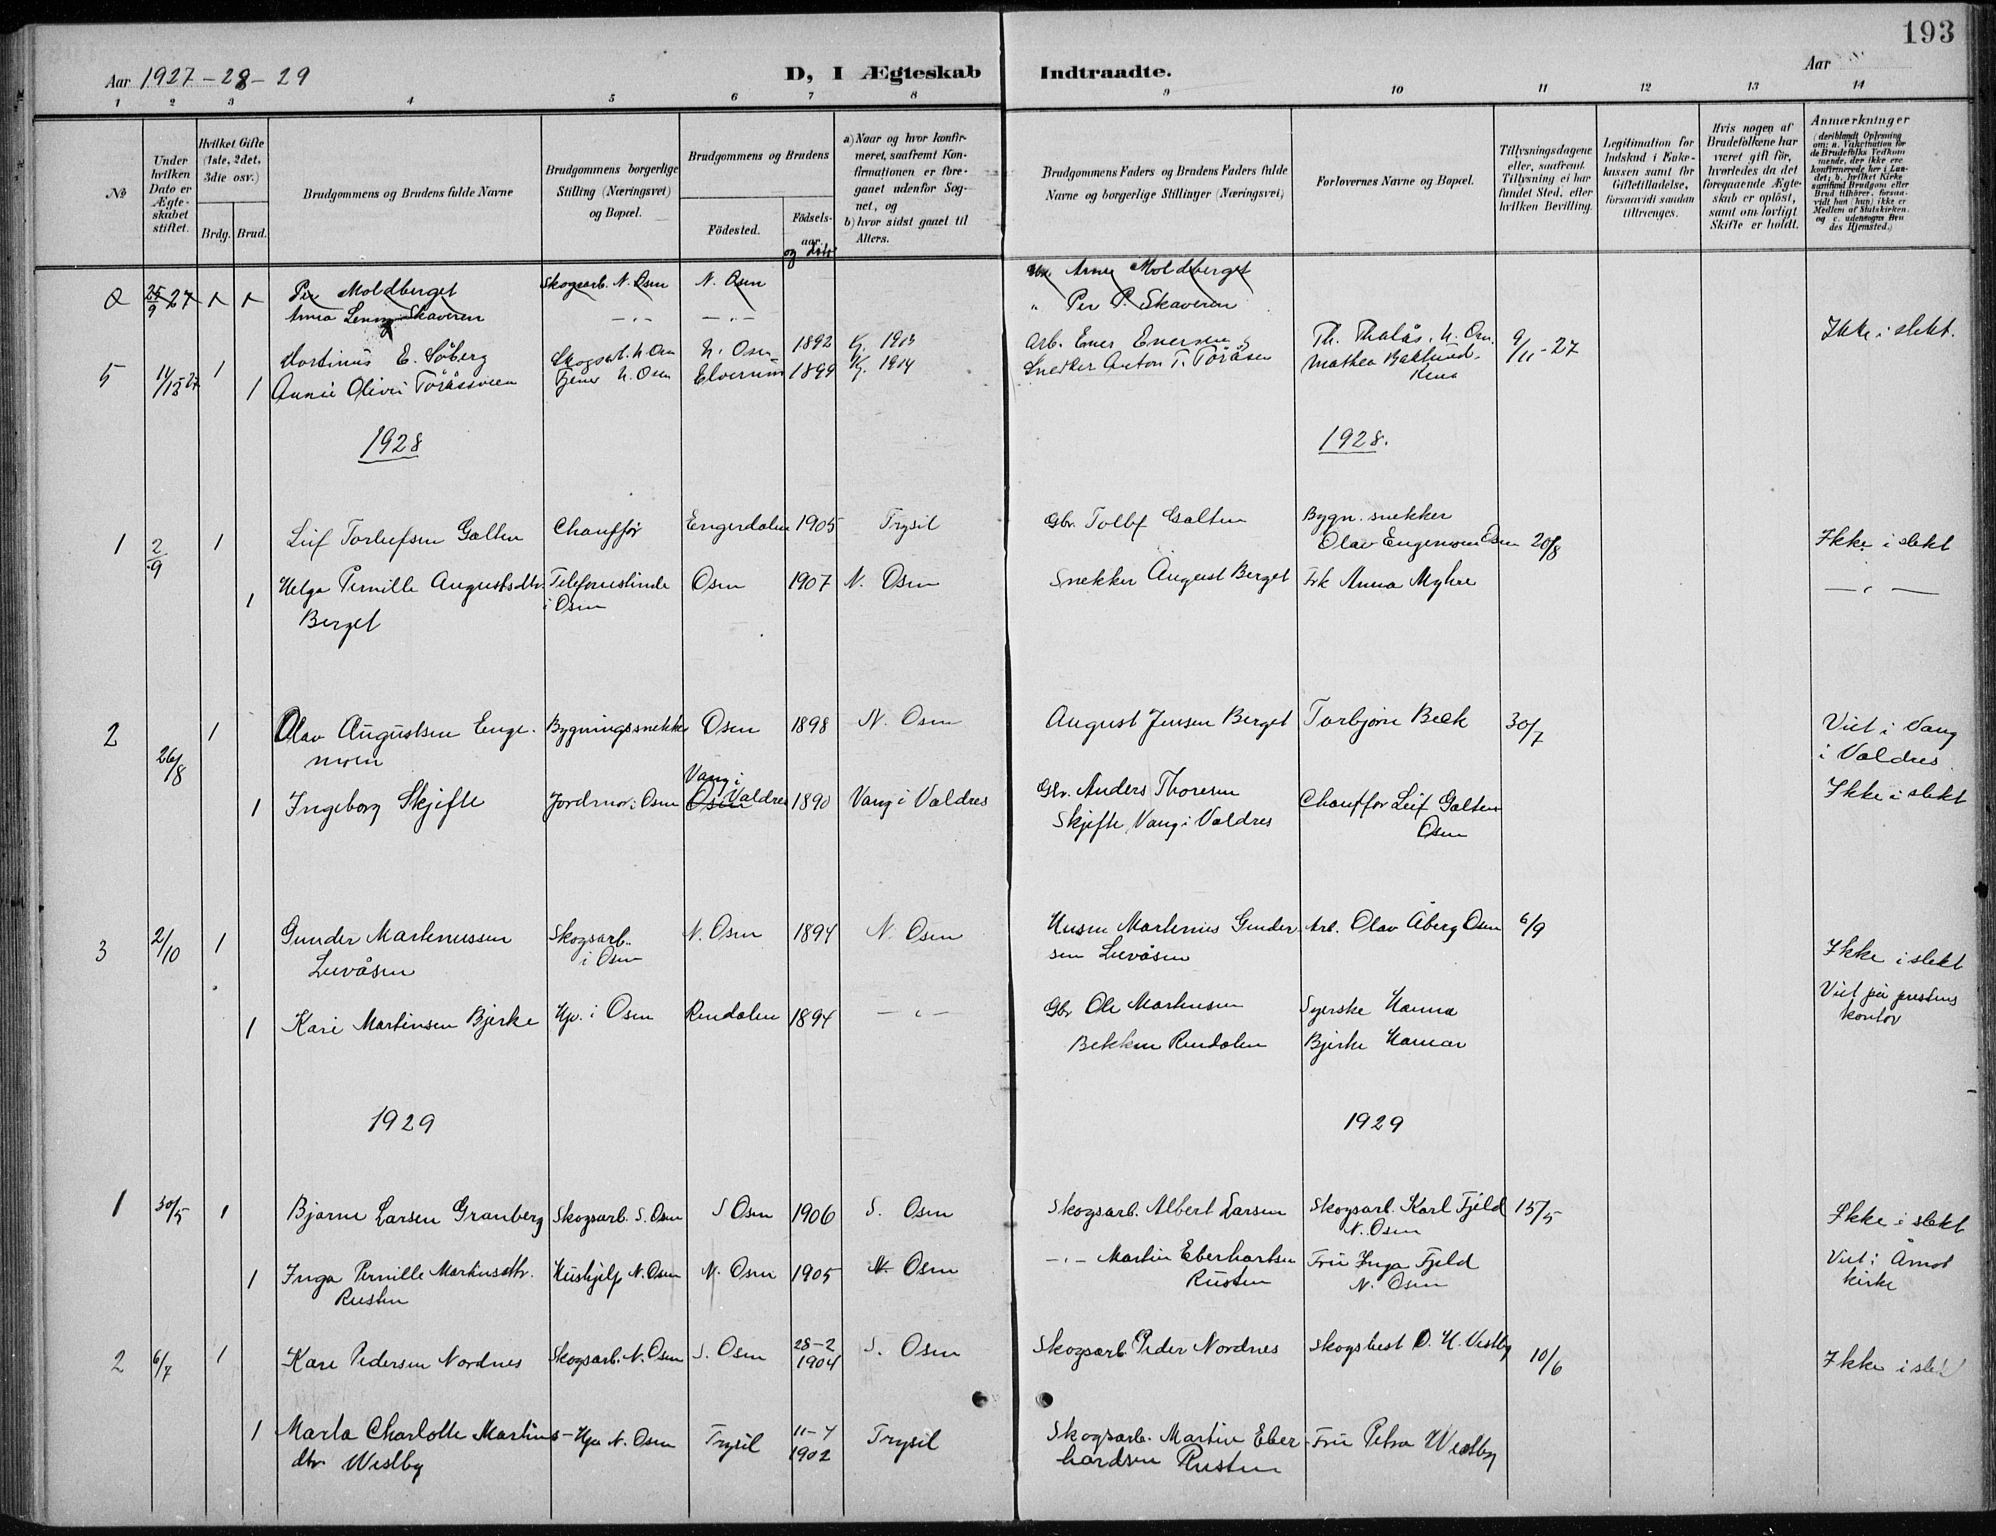 193
Aar 1927-28-29
D, I Ægteskab Indtraadte.
Aar
1 2 3 4 5 6 7 8 9 10 11 12 13 14
No
Under hvilken Dato er Ægteskabet stiftet.
Hvilket Gifte (1ste, 2det, 3die osv.)
Brdg. Brud.
Brudgommens og Brudens fulde Navne
Brudgommens borgerlige Stilling (Næringsvei) og Bopæl.
Brudgommens og Brudens
Fødested.
Fødselsaar.
og dato
a) Naar og hvor konfirmeret, saafremt Konfirmationen er foregaaet udenfor Sognet, og
b) hvor sidst gaaet til Alters.
Brudgommens Faders og Brudens Faders fulde Navne og borgerlige Stillinger (Næringsvei)
Forlovernes Navne og Bopæl.
Tillysningsdagene eller, saafremt Tillysning ei har fundet Sted, efter hvilken Bevilling.
Legitimation for Indskud i Enkekassen samt for Giftetilladelse, forsaavidt saadan tiltrænges.
Hvis nogen af Brudefolkene har været gift før, hvorledes da det foregaaende Ægteskab er opløst, samt om lovligt Skifte er holdt.
Anmærkninger
(deriblandt Oplysning om: a. Vakcination for de Brudefolks Vedkommende, der ikke ere konfirmerede her i Landet; b. hvilket Kirkesamfund Brudgom eller Brud tilhører, forsaavidt han (hun) ikke er Medlem af Statskirken, og c. udensogns Brudes Hjemsted.)
25/9 27 1 1 Per Moldberget Skogsarb. N. Osen N. Osen Arne Moldberget
Anna Lenny Skaveren -"- -"- " Per P. Skaveren
5 11/12-27 1 Martinus E. Søberg Skogsarb. N. Osen N. Osen 1892 1913 Arb. Ener Enersen Th. Thalås, N. Osn. 9/11-27 Ikke i slekt.
1 Annie Olivie Toråssveen Tjener N. Osen Elverum 1899 1914 Snedker Anton T. Toråsen Mathea Baklund Rena
1928 1928.
1 2/9 1 Leif Torleifsen Galten Chauffør Engerdalen 1905 Trysil Gbr. Tollef Galten Bygn. snekker
Olav Engemoen Osen 20/8 Ikke i slekt
1 Helga Pernille Augustsdtr. Telefonistinde Osen 1907 N. Osen Snekker August Berget Frk Anna Myhre -"-
Berget i Osen
2 26/8 1 Olav Augustsen Enge- Bygningssnekker Osen 1898 N. Osen August Jensen Berget Torbjørn Bekk 30/7 Viet i Vang
moen i Valdres
1 Ingeborg Skjefte Jordmor i Osen Osen Vang i Valdres 1890 Vang i Valdres Gbr. Anders Thoresen Chauffør Leif Galten Ikke i slekt
Skjefte, Vang i Valdres Osen
3 2/10 1 Gunder Martinussen Skogsarb. N. Osen 1894 N. Osen Husm Martinius Gunder- Arb. Olav Åberg Osen 6/9
Luvåsen i Osen sen Luvåsen Ikke i slekt
1 Kari Martinsen Bjerke Hp. i Osen Rendalen 1894 -"- Gbr Ole Martinsen Syerske Hanna Viet på prestens
Bekken Rendalen Bjerke Hamar kontor
1929 1929
1 30/5 1 Bjarne Larsen Granberg Skogsarb. S. Osen S Osen 1906 S. Osen Skogsarb. Albert Larsen Skogsarb. Karl Fjeld 15/5 Ikke i slekt
N. Osen
1 Inga Pernille Martinsdtr. Hushjelp N. Osen N. Osen 1905 N. Osen -"- Martin Eberhartsen Fru Inga Fjeld Viet i Åmot
Rusten Rusten N. Osen kirke
2 6/7 1 Kare Pedersen Nordnes Skogsarb. N. Osen S. Osen 28-2 1904 S. Osen Skogsarb. Peder Nordnes Skogsbest O. H. Vestby 10/6 Ikke i slekt
1 Marta Charlotte Martins- Hp N. Osen Trysil 11-4 1902 Trysil Skogsarb. Martin Eber- Fru Petra Westby
dtr Westby hardsen Rusten